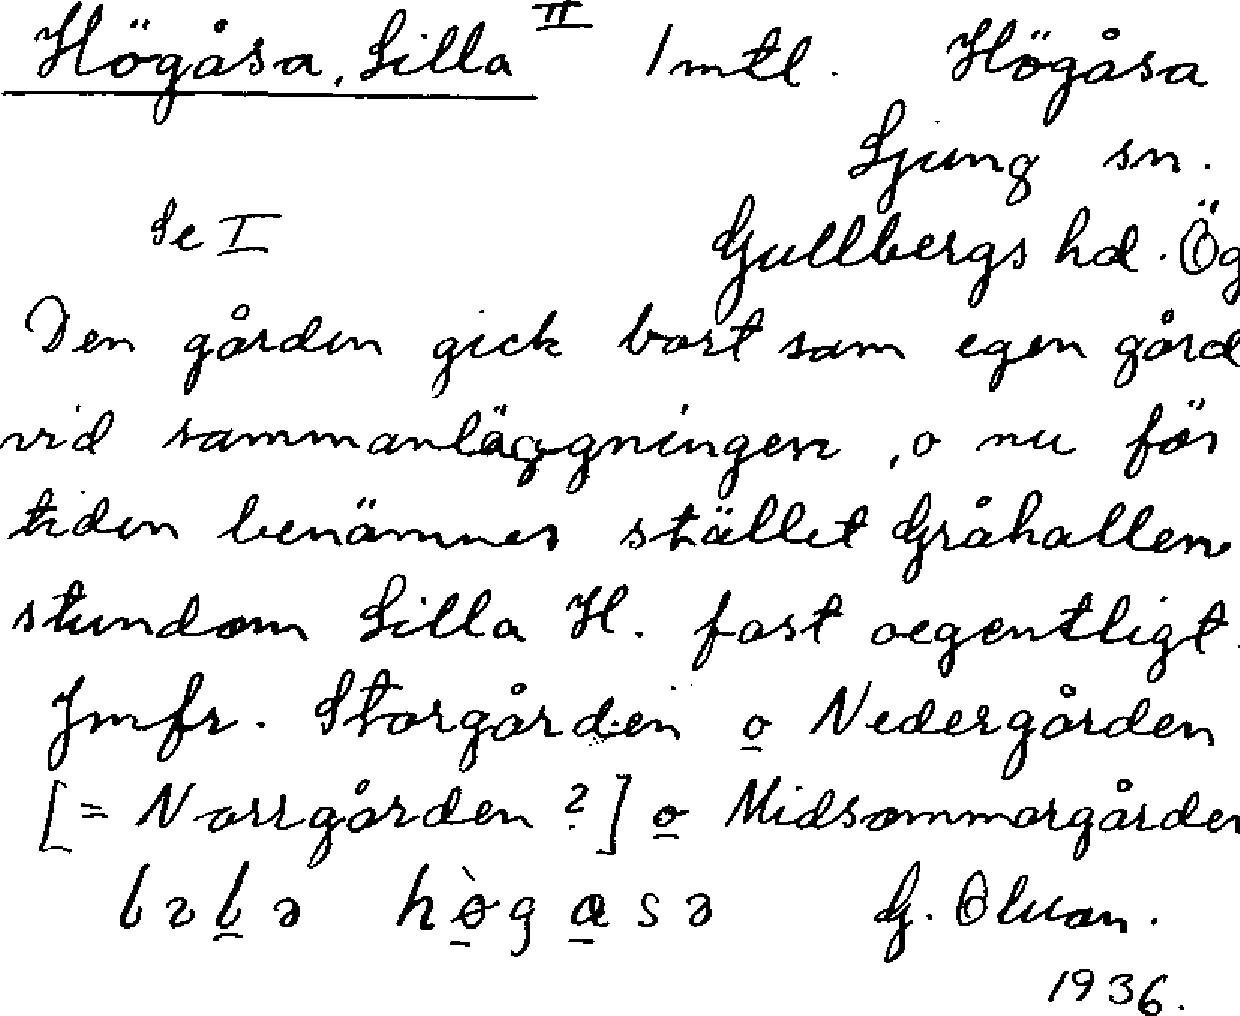 Högåsa, Lilla II 1 mtl. Högåsa
Ljung sn.
Se I Gullbergs hd. Ög
Den gården gick bort som egen gård
vid sammanläggningen, o nu för
tiden benämnes stället Gråhallen
stundom Lilla H. fast oegentligt.
Jmfr. Storgården o Nedergården
[= Norrgården ?] o Midsommargården
G.
1936.